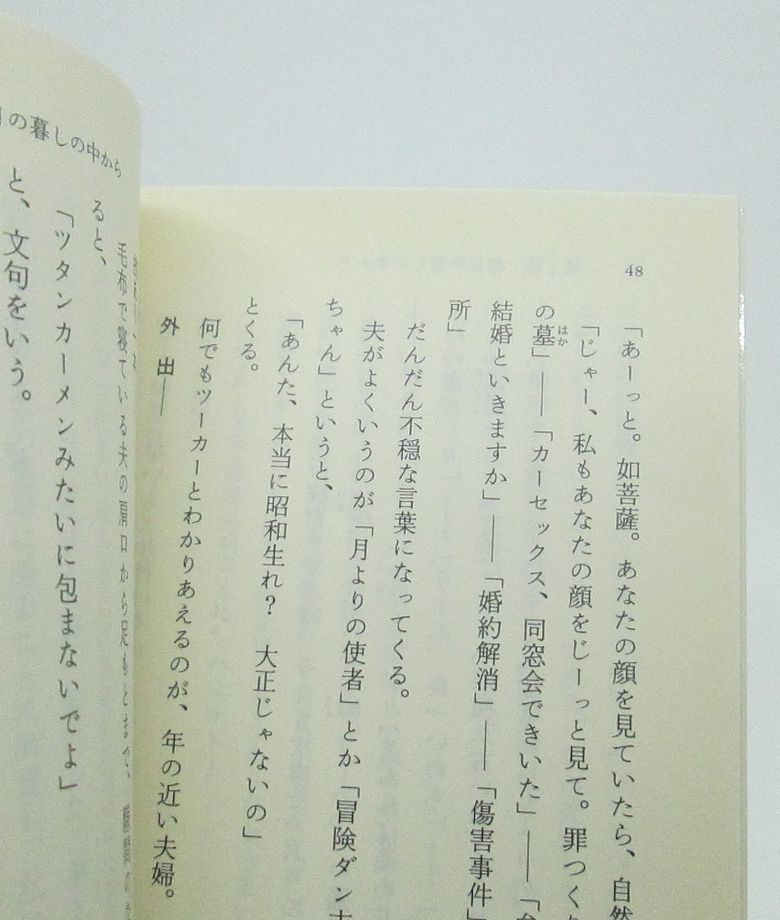 48
「あーっと。如菩薩。あなたの顔を見ていたら、自然
「じゃー、私もあなたの顔をじーっと見て。罪つく
の墓」――「カーセックス、同窓会できいた」――「
はか
結婚といきますか」――「婚約解消」――「傷害事件」
所」
だんだん不穏な言葉になってくる。
夫がよくいうのが「月よりの使者」とか「冒険ダン
ちゃん」というと、
「あんた、本当に昭和生れ？　大正じゃないの」
とくる。
何でもツーカーとわかりあえるのが、年の近い夫婦。
外　出――
の暮しの中から
毛布で寝ている夫の肩口から足もとまで、
ると、
「ツタンカーメンみたいに包まないでよ」
と、文句をいう。